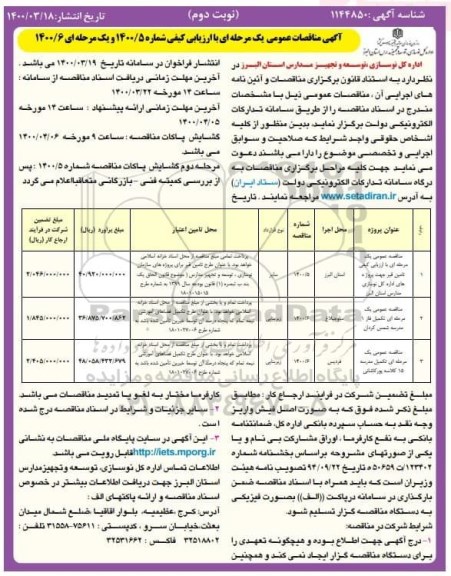 شناسه آگهی : ۱۱۴۴۸۵۰
(نوبت دوم)
تاریخ انتشار: ۱۴۰۰/۰۳/۱۸
آگهی مناقصات عمومی یک مرحله ای با ارزیابی کیفی شماره ۱۴۰۰/۵ و یک مرحله ای ۱۴۰۰/۶
اداره کل نوسازی ،توسعه و تجهیز مدارس استان البرز در
نظر دارد به استناد قانون برگزاری مناقصات و آئین نامه
های اجرایی آن ، مناقصات عمومی ذیل با مشخصات
مندرج در اسناد مناقصه را از طریق سامانه تدارکات
الکترونیکی دولت برگزار نماید. بدین منظور از کلیه
اشخاص حقوقی واجد شرایط که صلاحیت و سوابق
اجرایی و تخصصی موضوع را دارا می باشند دعوت
می نماید جهت کلیه مراحل برگزاری مناقصات به
درگاه سامانه تدارکات الکترونیکی دولت (ستاد ایران)
به آدرس www.setadiran.ir مراجعه نمایند . تاریخ
انتشار فراخوان در سامانه تاریخ ۱۴۰۰/۰۳/۱۹ می باشد .
آخرین مهلت زمانی دریافت اسناد مناقصه از سامانه :
ساعت ۱۴ مورخه ۱۴۰۰/۰۳/۲۲
آخرین مهلت زمانی ارائه پیشنهاد : ساعت ۱۴ مورخه
۱۴۰۰/۰۴/۰۵
گشایش پاکات مناقصه : ساعت ۹ مورخه ۱۴۰۰/۰۴/۰۶
می باشد.
مرحله دوم گشایش پاکات مناقصه شماره ۱۴۰۰/۵ : پس
از بررسی کمیته فنی - بازرگانی متعاقبا اعلام می گردد
عنوان پروژه
محل اجرا
شماره مناقصه
محل تامین اعتبار
مبلغ برآورد (ریال)
مبلغ تضمین شرکت در فرآیند ارجاع کار (ریال)
۱
استان البرز
۱۴۰۰/۵
سایر
۴۰/۹۲۰/۰۰۰/۰۰۰
۲/۰۴۶/۰۰۰/۰۰۰
۲
۳۶/۸۷۵/۷۰۰/۸۶۲
۱/۸۴۵/۰۰۰/۰۰۰
۳
فردیس
۴۸/۰۵۸/۴۳۲/۶۷۹
۲/۴۰۵/۰۰۰/۰۰۰
مبلغ تضمین شرکت در فرآیند ارجاع کار : مطابق
مبلغ ذکر شده فوق که به صورت اصل فیش واریز
وجه نقد به حساب سپرده بانکی اداره کل، ضمانتنامه
بانکی به نفع کارفرما ، اوراق مشارکت بی نام و یا
یکی از صورتهای مشروحه براساس بخشنامه شماره
۱۲۳۴۰۲/ت ۵۰۶۵۹ ه تاریخ ۹۴/۰۹/۲۲ تصویب نامه هیئت
وزیران است که باید همراه با اسناد مناقصه ضمن
بارگذاری در سامانه درپاکت ((الف)) بصورت فیزیکی
به دستگاه مناقصه گزار تسلیم شود.
شرایط شرکت در مناقصه:
۱-درج آگهی جهت اطلاع بوده و هیچگونه تعهدی را
برای دستگاه مناقصه گزار ایجاد نمی کند و همچنین
کارفرما مختار به لغو یا تمدید مناقصات می باشد.
۲- سایر جزئیات و شرایط در اسناد مناقصه درج شده
است .
۳- این آگهی در سایت پایگاه ملی مناقصات به نشانی
http://iets.mporg.ir قابل رویت می باشد.
اطلاعات تماس اداره کل نوسازی، توسعه و تجهیز مدارس
استان البرز جهت دریافت اطلاعات بیشتر در خصوص
اسناد مناقصه و ارائه پاکتهای الف :
آدرس: کرج ،عظیمیه، بلوار آقاقیا ،ضلع شمال میدان
بعثت،خیابان سرو ، کدپستی : ۷۵۶۱۱-۳۱۵۵۸ تلفن :
۳۲۵۱۸۸۰۲ فاکس : ۳۲۵۳۱۶۶۲